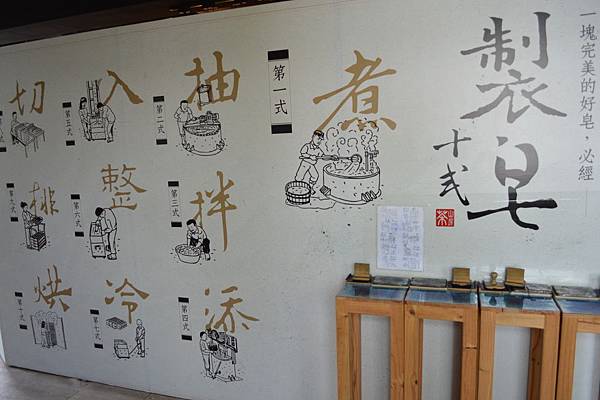 一塊完美的好皂，必經
製衣皂
十式
第一式
煮
第二式
抽
第三式
拌
第四式
添
第五式
入
第六式
整
第七式
冷
切
第九式
排
第十式
烘